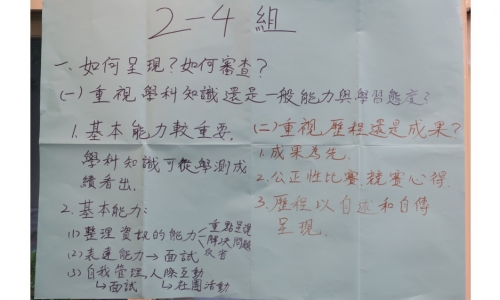 2-4組
一、如何呈現?如何審查?
(一)重視學科知識還是一般能力與學習態度?
1.基本能力較重要.
學科知識可從學測成
績看出.
2.基本能力:
(1)整理資訊的能力
重點呈現
解決問題
(2)表達能力→面試
(3)自我管理,人際互動
↳面試 ↳社團活動
(二)重視歷程還是成果?
1.成果為先.
2.公正性比賽.競賽心得.
3.歷程以自述和自傳
呈現.